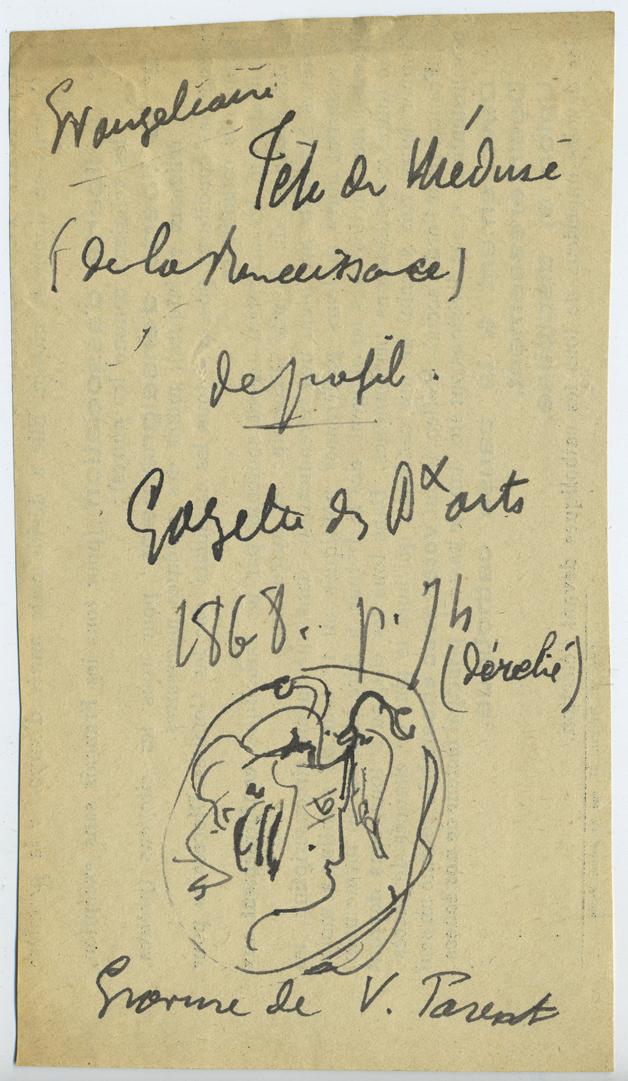 Tête de Méduse
(de la Renaissance)
de profil.
Gazette des Bx arts
1868. p. 74
(dérelié)
Gravure de V. Parent